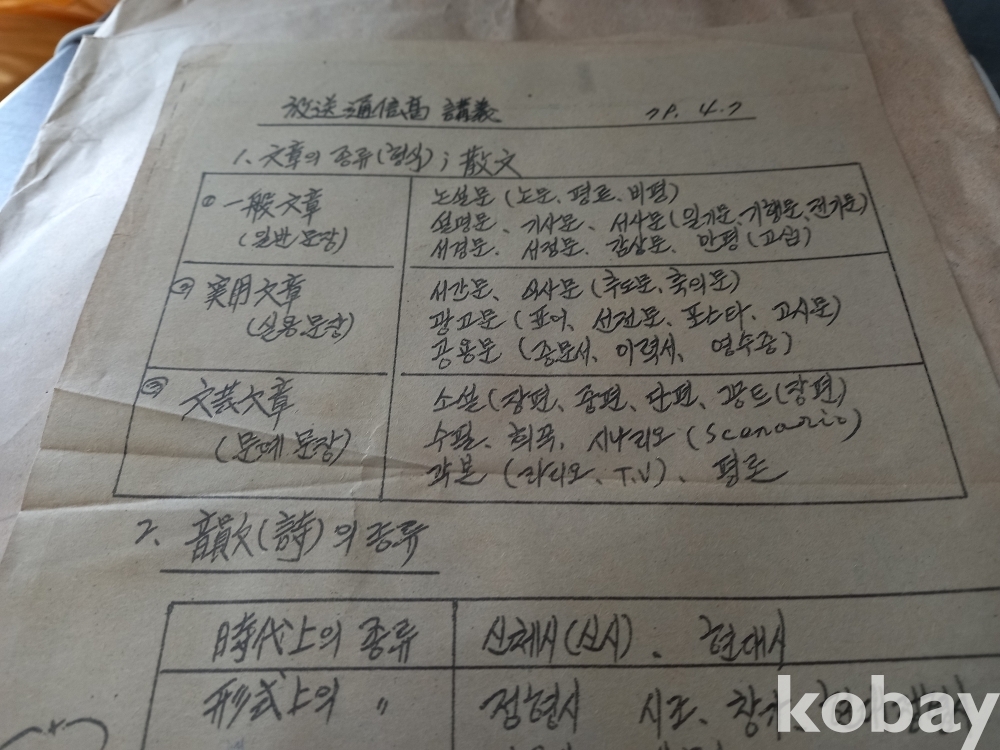 放送通信高 講義 79. 4. 7
1. 文章의 종류(형식); 散文
① 一般文章
(일반문장)
논설문 (논문、평론、비평)
설명문、기사문、서사문(일기문、기행문、전기문)
서경문、서정문、감상문、만평(고십)
② 実用文章
(실용문장)
서간문、식사문(추도문、축의문)
광고문 (표어、선전문、포스타、고시문)
공용문 (증문서、이력서、영수증)
③ 文芸文章
(문예문장)
소설(장편、중편、단편、꽁트(장편)
수필、희곡、시나리오(Scenario)
각본 (라디오、T.V)、평론
2. 韻文(詩)의 종류
時代上의 종류
신체시(신시)、현대시
形式上의 〃
정형시 시조、창가
kobay